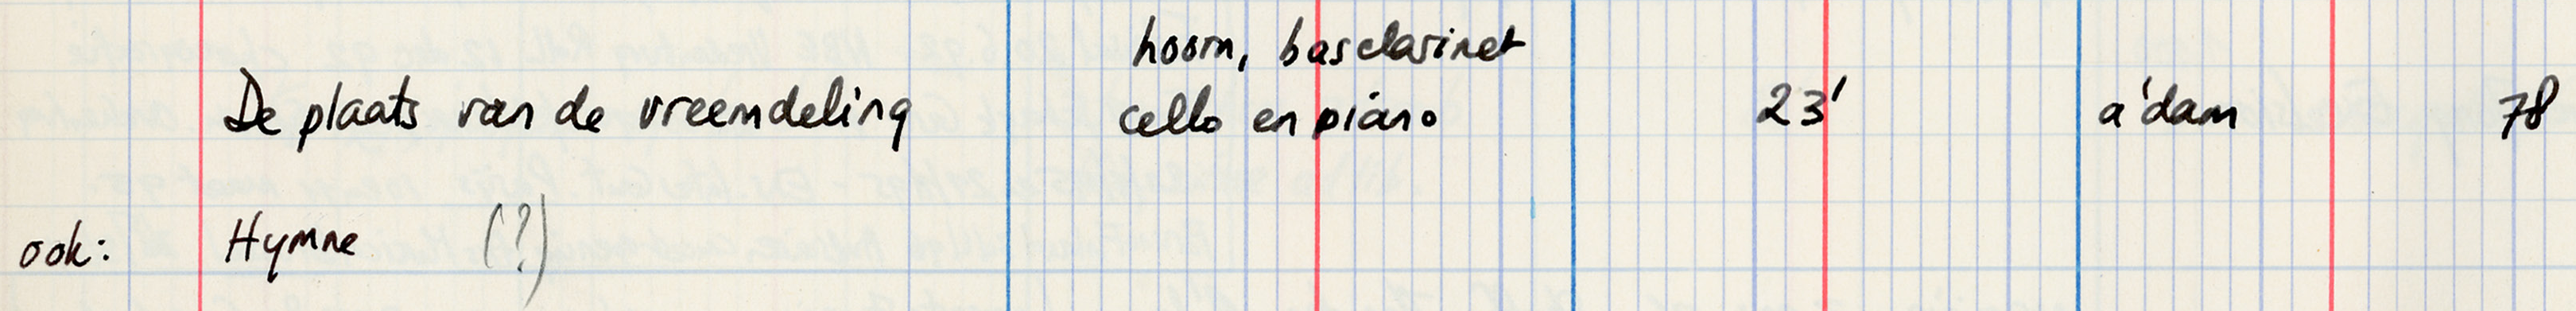 hoorn, basclarinet
De plaats van de vreemdeling cello en piano 23' a'dam 78
ook: Hymne (?)